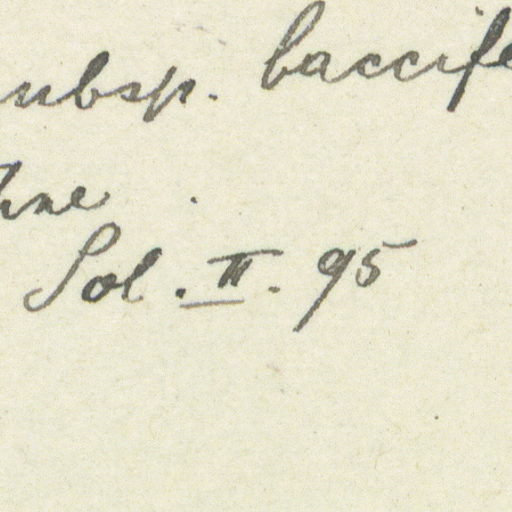 subsp. baccife
hne.
Sol. II. 95